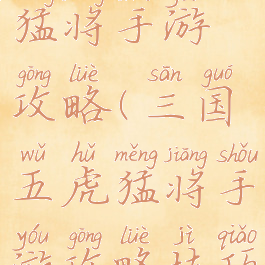 猛将手游
gōng lüè sān guó
攻略(三国
wǔ hǔ měng jiāng shǒu
五虎猛将手
yóu gōng lüè jì qiǎo
游攻略技巧